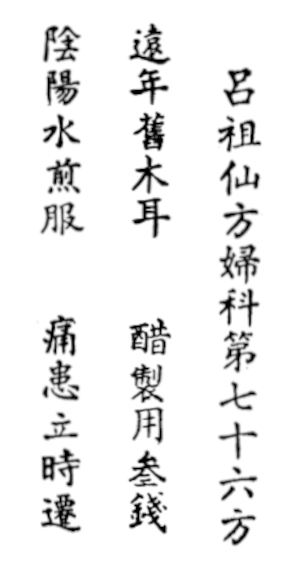 呂祖仙方婦科第七十六方
遠年舊木耳　醋製用叄錢
陰陽水煎服　痛患立時遷